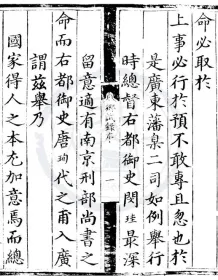 命必取於
上事必行於預不敢專且忽也於
是廣東藩臬二司如例舉行
時總督右都御史閔珪最深
留意適有南京刑部尚書之
命而右都御史唐珣代之甫入廣
謂茲舉乃
國家得人之本尤加意焉而總